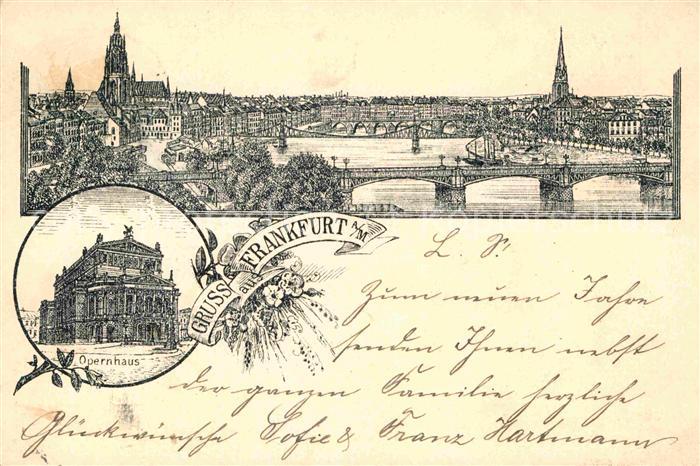 GRUSS aus FRANKFURT a/M
Opernhaus
L. S.
Zum neuen Jahre
senden Ihnen nebst
der ganzen Familie herzliche
Glückwünsche Sofie & Franz Hartmann